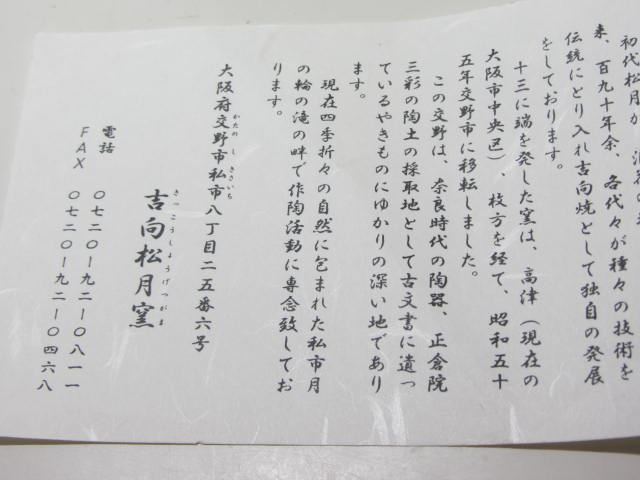 初代松月が
来、百九十年余、各代々が種々の技術を
伝統にとり入れ吉向焼として独自の発展
をしております。
十三に端を発した窯は、高津（現在の
大阪市中央区）、枚方を経て、昭和五十
五年交野市に移転しました。
この交野は、奈良時代の陶器、正倉院
三彩の陶土の採取地として古文書に遺っ
ているやきものにゆかりの深い地であり
ます。
現在四季折々の自然に包まれた私市月
の輪の滝の畔で作陶活動に専念致してお
ります。
大阪府交野市私市八丁目二五番六号
かたの し きさいち
吉向松月窯
きっこうしょうげつがま
電話 〇七二〇―九二―〇八一一
FAX 〇七二〇―九二―〇四六八